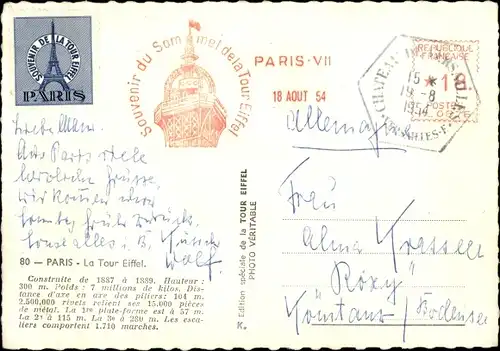 SOUVENIR DE LA TOUR EIFFEL
PARIS
Souvenir du Sommet de la Tour Eiffel
PARIS-VII
18 AOUT 54
REPUBLIQUE
FRANÇAISE
POSTES
15 *
19 -8
1954
Allemagne
Aus Paris viele
herzliche Grüße,
Wir kommen
zurück.
Sonst alles i. O.
80 — PARIS - La Tour Eiffel.
Construite de 1887 à 1889. Hauteur :
300 m. Poids : 7 millions de kilos. Dis-
tance d'axe en axe des piliers: 104 m.
2.500.000 rivets relient ses 15.000 pièces
de métal. La 1re plate-forme est à 57 m.
La 2e à 115 m. La 3e à 280 m. Les esca-
liers comportent 1.710 marches.
K. Edition spéciale de la TOUR EIFFEL
PHOTO VÉRITABLE
Frau
Alma
Roxy
Konstanz / Bodensee